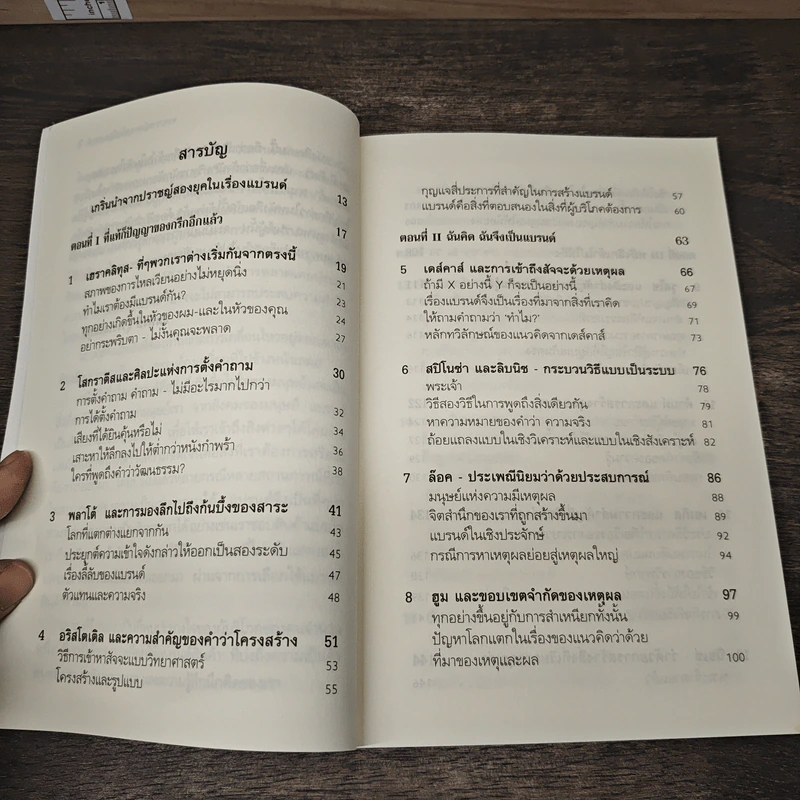 สารบัญ
เกริ่นนำจากปราชญ์สองยุคในเรื่องแบรนด์ 13
ตอนที่ I ที่แท้ก็ปัญญาของกรีกอีกแล้ว 17
1 เฮราคลิทุส- ที่ๆพวกเราต่างเริ่มกันจากตรงนี้ 19
สภาพของการไหลเวียนอย่างไม่หยุดนิ่ง 21
ทำไมเราต้องมีแบรนด์กัน? 23
ทุกอย่างเกิดขึ้นในหัวของผม-และในหัวของคุณ 24
อย่ากระพริบตา - ไม่งั้นคุณจะพลาด 27
2 โสกราตีสและศิลปะแห่งการตั้งคำถาม 30
การตั้งคำถาม คำถาม - ไม่มีอะไรมากไปกว่า
การได้ตั้งคำถาม 32
เสียงที่ได้ยินคุ้นหรือไม่ 34
เสาะหาให้ลึกลงไปให้ต่ำกว่าหนังกำพร้า 36
ใครที่พูดถึงคำว่าวัฒนธรรม? 38
3 พลาโต้ และการมองลึกไปถึงก้นบึ้งของสาระ 41
โลกที่แตกต่างแยกจากกัน 43
ประยุกต์ความเข้าใจดังกล่าวให้ออกเป็นสองระดับ 45
เรื่องลี้ลับของแบรนด์ 47
ตัวแทนและความจริง 48
4 อริสโตเติล และความสำคัญของคำว่าโครงสร้าง 51
วิธีการเข้าหาสัจจะแบบวิทยาศาสตร์ 53
โครงสร้างและรูปแบบ 55
กุญแจสี่ประการที่สำคัญในการสร้างแบรนด์ 57
แบรนด์คือสิ่งที่ตอบสนองในสิ่งที่ผู้บริโภคต้องการ 60
ตอนที่ II ฉันคิด ฉันจึงเป็นแบรนด์ 63
5 เดส์คาส์ และการเข้าถึงสัจจะด้วยเหตุผล 66
ถ้ามี X อย่างนี้ Y ก็จะเป็นอย่างนี้ 67
เรื่องแบรนด์จึงเป็นเรื่องที่มาจากสิ่งที่เราคิด 69
ให้ถามคำถามว่า 'ทำไม?' 71
หลักทวิลักษณ์ของแนวคิดจากเดส์คาส์ 73
6 สปิโนซ่า และลิบนิซ - กระบวนวิธีแบบเป็นระบบ 76
พระเจ้า 78
วิธีสองวิธีในการพูดถึงสิ่งเดียวกัน 79
หาความหมายของคำว่า ความจริง 81
ถ้อยแถลงแบบในเชิงวิเคราะห์และแบบในเชิงสังเคราะห์ 82
7 ล๊อค - ประเพณีนิยมว่าด้วยประสบการณ์ 86
มนุษย์แห่งความมีเหตุผล 88
จิตสำนึกของเราที่ถูกสร้างขึ้นมา 89
แบรนด์ในเชิงประจักษ์ 92
กรณีการหาเหตุผลย่อยสู่เหตุผลใหญ่ 94
8 ฮูม และขอบเขตจำกัดของเหตุผล 97
ทุกอย่างขึ้นอยู่กับการสำเหนียกทั้งนั้น 99
ปัญหาโลกแตกในเรื่องของแนวคิดว่าด้วย
ที่มาของเหตุและผล 100